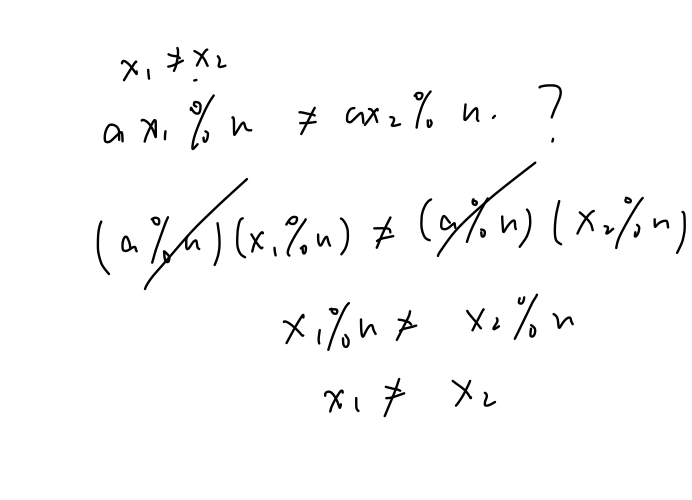 x₁ ≠ x₂
a x₁ % n ≠ ax₂ % n. ?
(a % n) (x₁ % n) ≠ (a % n) (x₂ % n)
x₁ % n ≠ x₂ % n
x₁ ≠ x₂